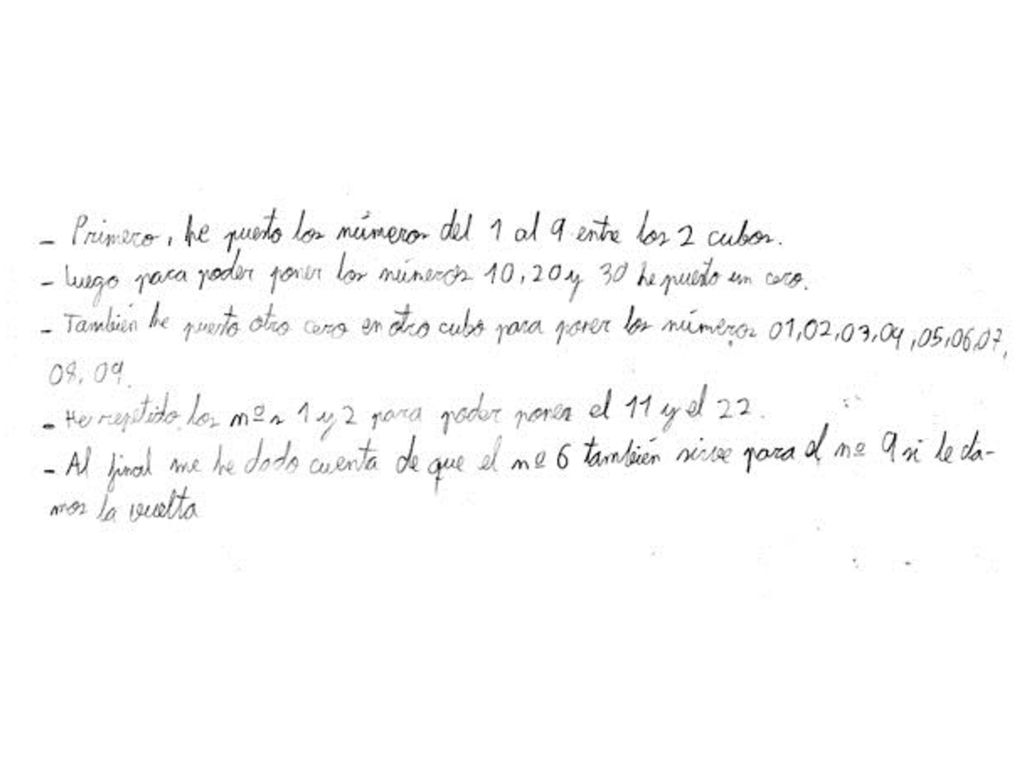 - Primero, he puesto los números del 1 al 9 entre los 2 cubos.
- Luego para poder poner los números 10, 20 y 30 he puesto un cero.
- También he puesto otro cero en otro cubo para poner los números 01, 02, 03, 04, 05, 06, 07,
08, 09.
- He repetido los nºs 1 y 2 para poder poner el 11 y el 22.
- Al final me he dado cuenta de que el nº 6 también sirve para el nº 9 si le da-
mos la vuelta